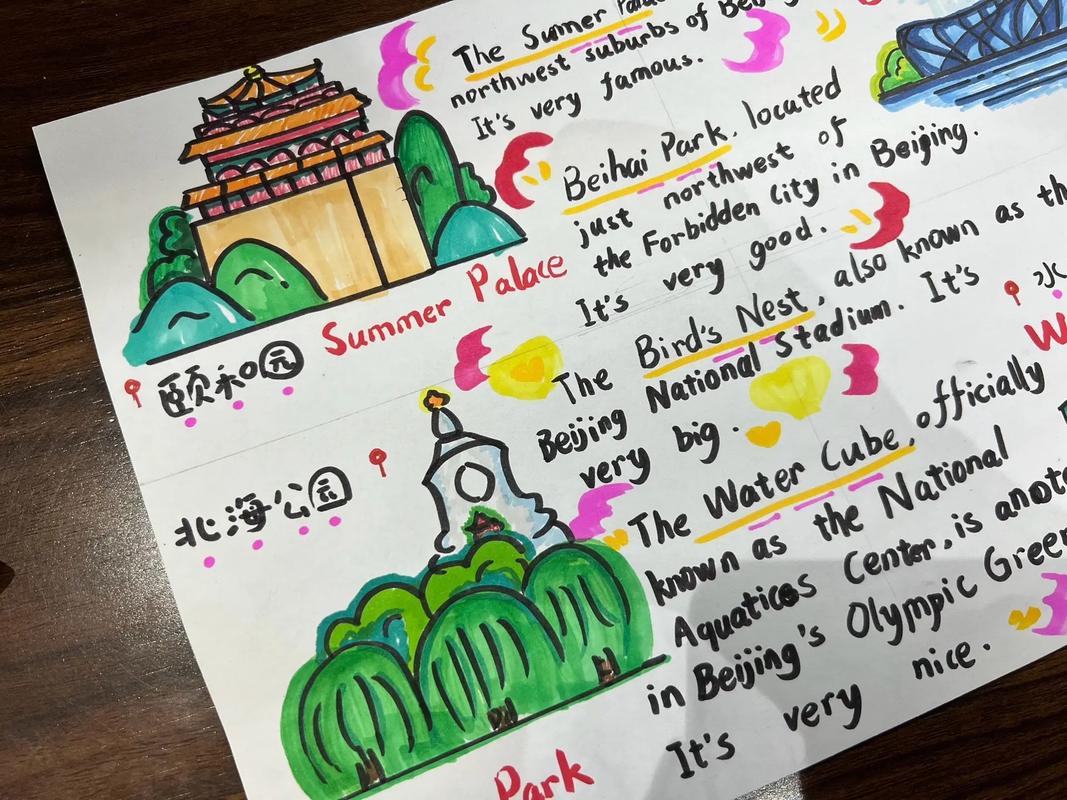 The Summer Palace
northwest suburbs of Beijing
It's very famous.
Beihai Park, located
just northwest of
the Forbidden City in Beijing.
It's very good.
Summer Palace
颐和园
The Bird's Nest, also known as the
Beijing National Stadium. It's
very big.
水
W
北海公园
The Water Cube, officially
known as the National
Aquatices Center, is anote
in Beijing's Olympic Green
It's very nice.
Park